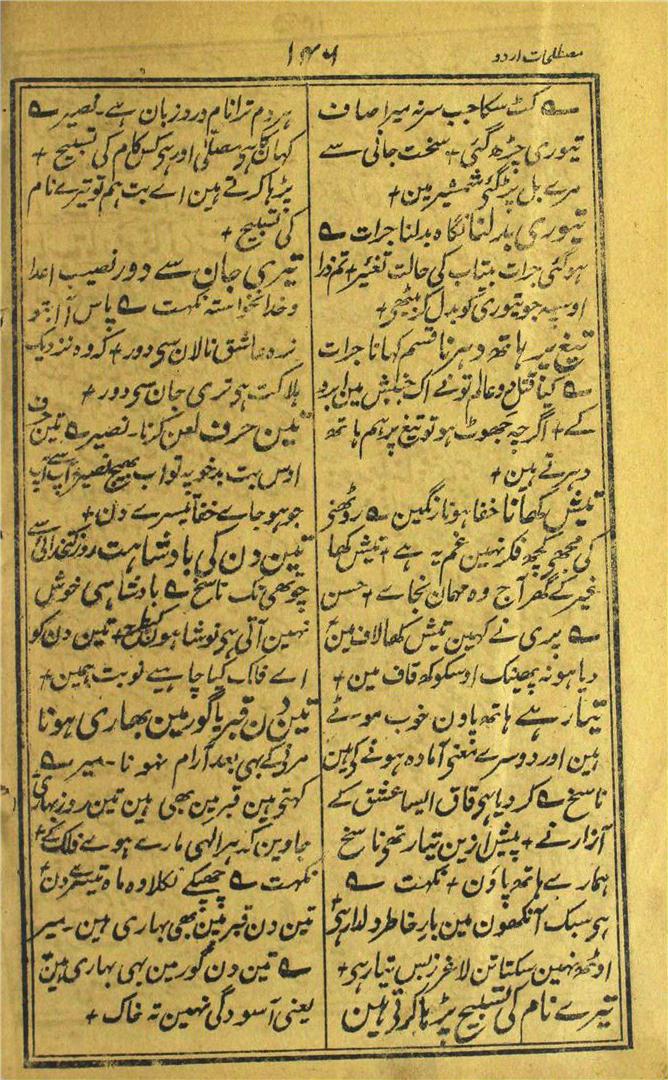 مصطلحات اردو
۱۴۶
ے کٹ سکا جب سر نہ میرا صاف
تیوری چڑھ گئی + سخت جانی سے
مرے بل پڑ گئے شمشیر مین +
تیوری بدلنا نگاہ بدلنا جرات ے
ہو گئی جرات بیتاب کی حالت تغیر + تم ذرا
اوسپہ جو تیوری کو بدل کر بیٹھی +
تیغ پر ہاتھ دہرنا قسم کہانا جرات
ے کیا قتل دو عالم تونے اک جنبش مین ابرو
کے + اگرچہ جھوٹ ہو تو تیغ پر ہم ہاتھ
دہرتے ہین +
تیش کھانا خفا ہونا رنگین ے روٹھنی
کی مجھی کچھ فکر نہین غم یہ ہے + تیش کھا
غیر کے گھر آج وہ مہمان نجاے + حسن
ے پری نے کہین تیش کھا لاف مین
دیا ہو نہ پھینک اوسکو کوہ قاف مین +
تیار ہے ہاتھ پاون خوب موٹے
ہین اور دوسرے معنی آمادہ ہونے کی ہین
ناسخ ے کر دیا ہی قاق ایسا عشق کے
آزار نے + پیش ازین تیار تھی ناسخ
ہمارے ہاتھ پاون + نکہت ے
ہی سبک آنکھون مین بار خاطر دلدار ہی +
اوٹھ نہین سکتا تن لاغر زبس تیار ہی +
تیرے نام کی تسبیح پڑہا کرتی ہین
ہر دم ترا نام ورد زبان ہے ۔ نصیر ے
کہان کا ہی مصلّٰی اور ہی کس کام کی تسبیح +
پڑہا کرتے ہین اے بت ہم تو تیرے نام
کی تسبیح +
تیری جان سے دور نصیب اعدا
و خدا نخواستہ نکہت ے پاس آ ا بتو
نرہ عاشق نالان سی دور + کہ وہ نزدیک
ہلاکت ہی تری جان سی دور +
تین حرف لعن کرنا ۔ نصیر ے تین حرف
اوس بت بدخو پہ تو اب بھیج نصیر + آپ سے آپ
جو ہو جاے خفا تیسرے دن +
تین دن کی بادشاہت روز کتخدائی سے
چوتھی تک ناسخ ے بادشاہی خوش
نہین آتی ہی نوشاہون کیطرح + تین دن کو
اے فلک کیا چاہیے نوبت ہمین +
تین دن قبر یا گور مین بھاری ہونا
مرنیکے بھی بعد آرام نہونا ۔ میر ے
کہتی ہین قبر مین بھی ہین تین روز بھاری
جاوین کدہر الٰہی مارے ہوے فلک کے +
نکہت ے چھپکے نکلا وہ ماہ تیسرے دن +
تین دن قبر مین بھی بھاری ہین ۔ میر
ے تین دن گور مین بھی بھاری ہین
یعنی آسودگی نہین تہ خاک +